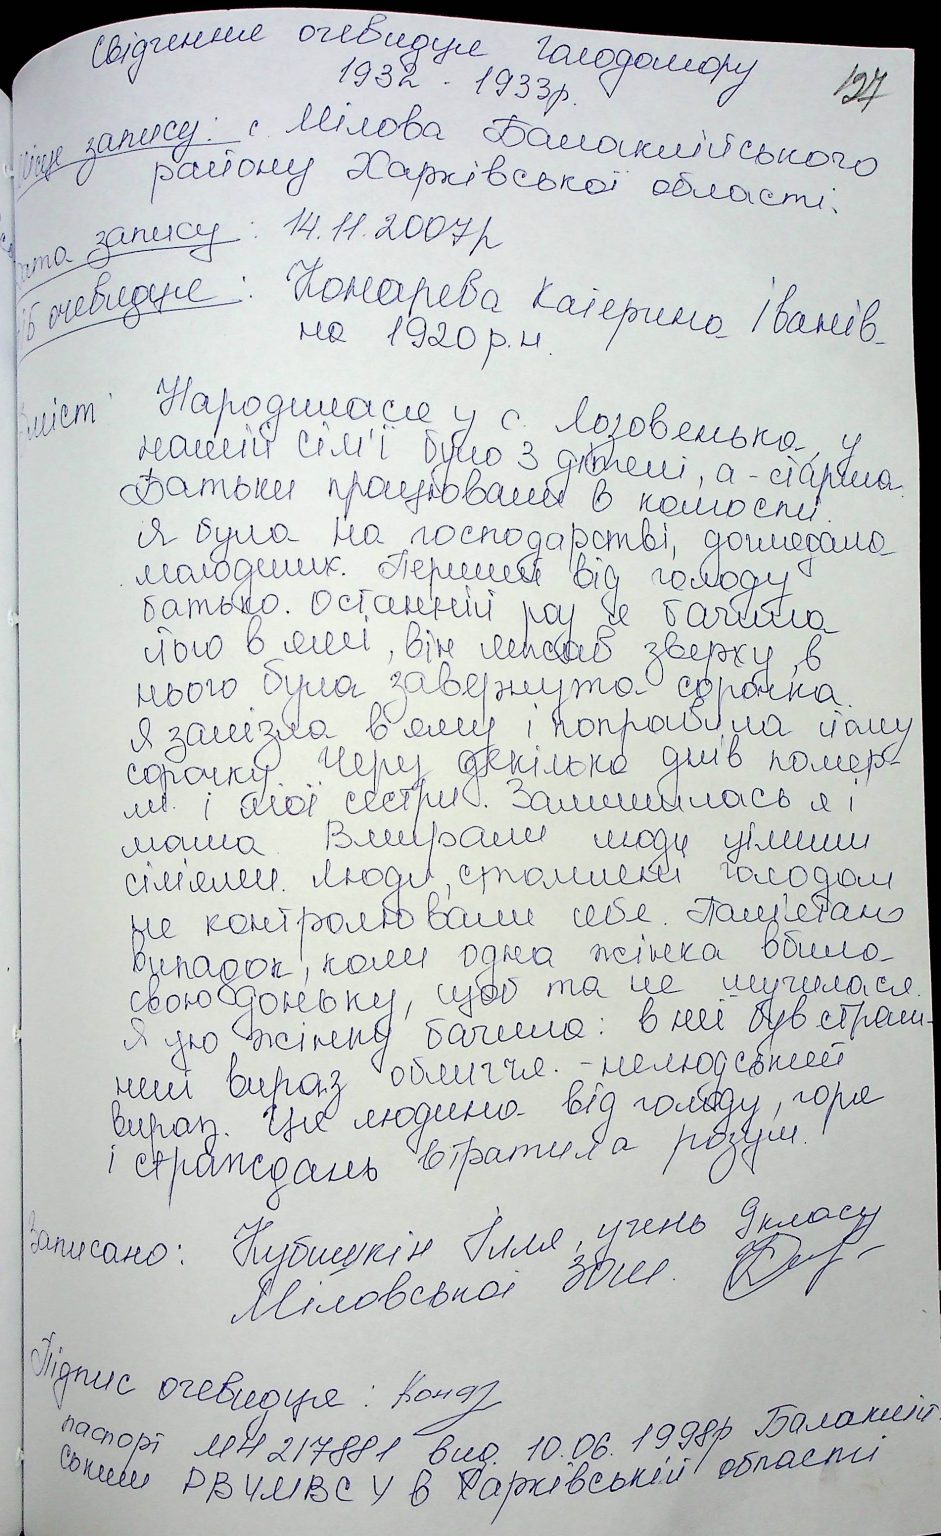 Свідчення очевидця голодомору
1932 - 1933р.
127
Місце запису: с. Мілова Балаклійського
району Харківської області.
Дата запису: 14.11.2007р
ПІБ очевидця: Конарева Катерина Іванів-
на 1920 р.н.
Зміст: Народилася у с. Лозовенька, у
нашій сім'ї було 3 дітей, а - старша.
Батьки працювали в колгоспі.
Я була на господарстві, доглядала
молодших. Перший від голоду
батько. Останній раз я бачила
його в ямі, він лежав зверху, в
нього була завернута сорочка.
Я залізла в яму і поправила йому
сорочку. Через декілька днів помер-
ли і мої сестри. Залишилась я і
мама. Вмирали люди цілими
сім'ями. Люди, стомлені голодом
не контролювали себе. Пам'ятаю
випадок, коли одна жінка вбила
свою доньку, щоб та не мучилася.
Я цю жінку бачила: в неї був страш-
ний вираз обличчя - нелюдський
вираз. Ця людина від голоду, горя
і страждань втратила розум.
Записано: Кубишкін Ілля, учень 9 класу
Міловської ЗОШ.
Підпис очевидця:
паспорт МН 217881 вид. 10.06.1998р Балаклій-
ським РВУМВСУ в Харківській області